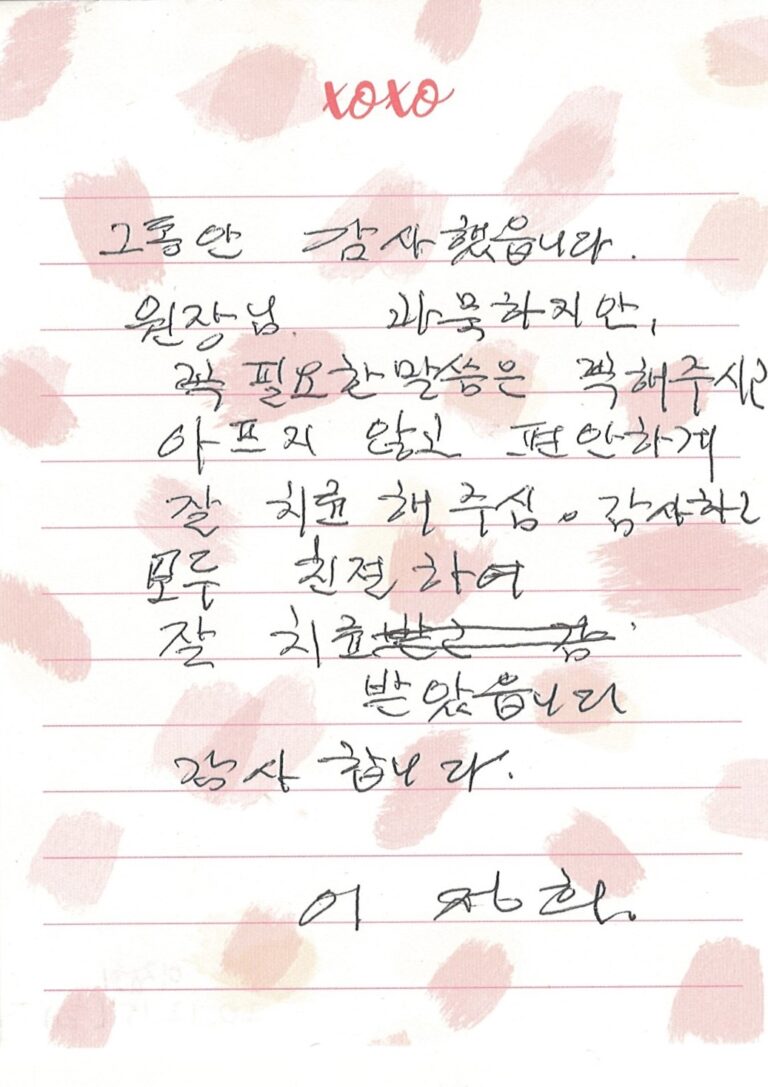 xoxo
그동안 감사했읍니다.
원장님. 과묵하지만,
꼭 필요한 말씀은 꼭해주시고
아프지 않고 편안하게
잘 치료 해 주심. 감사하고
모두 친절하여
잘 치료
받았읍니다
감사 합니다.
이 정희.